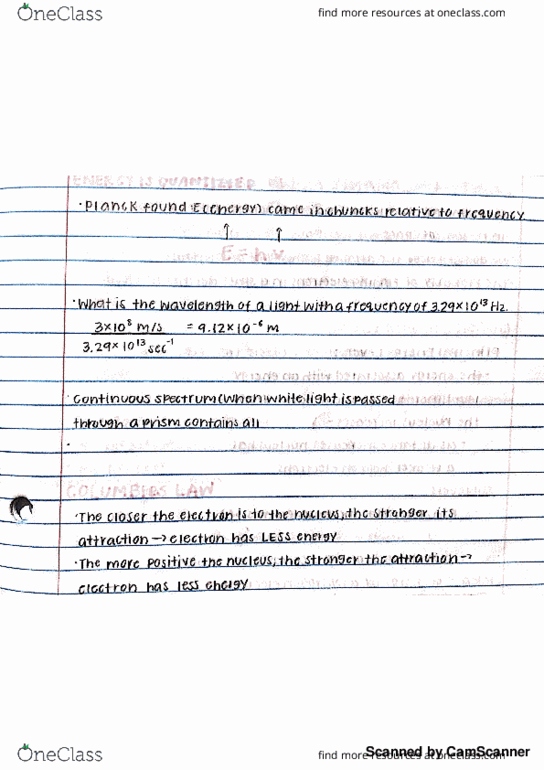 OneClass
find more resources at oneclass.com
ENERGY IS QUANTIZED
·Planck found E(energy) came in chuncks relative to frequency
E = hν
·What is the wavelength of a light with a frequency of 3.29×10¹³ Hz.
3×10⁸ m/s = 9.12×10⁻⁶ m
3.29×10¹³ sec⁻¹
·Continuous spectrum(when white light is passed
through a prism contains all
·
COLUMBIAS LAW
·The closer the electron is to the nucleus, the stronger its
attraction → electron has LESS energy
·The more positive the nucleus, the stronger the attraction →
electron has less energy
Scanned by CamScanner
OneClass
find more resources at oneclass.com